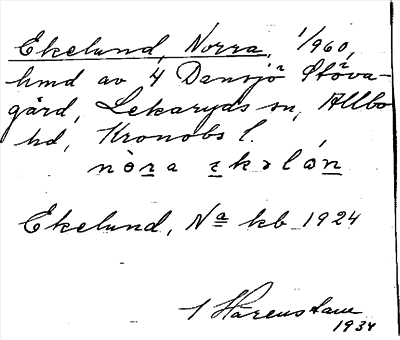 Ekelund, Norra, 1/960,
hmd av 4 Dansjö Störa-
gård, Lekaryds sn, Allbo
hd, Kronobs l.
nòra ekəlón
Ekelund, Na kb 1924
Härenstam
1934